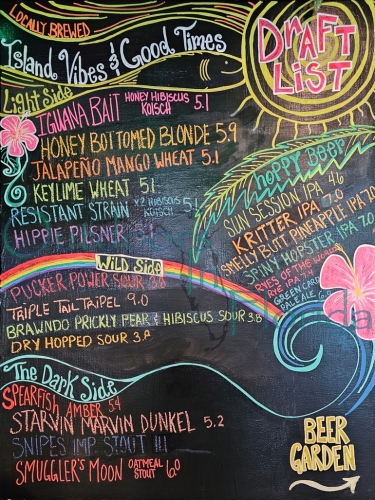 LOCALLY BREWED
Island Vibes & Good Times
DRAFT
LIST
Light Side
IGUANA BAIT HONEY HIBISCUS KOLSCH 5.1
HONEY BOTTOMED BLONDE 5.9
JALAPEÑO MANGO WHEAT 5.1
KEYLIME WHEAT 5.1
RESISTANT STRAIN x2 HIBISCUS KOLSCH 5.1
HIPPIE PILSNER 5.1
HOPPY BEER
SUN SESSION IPA 4.6
KRITTER IPA 7.0
SMELLY BUTT PINEAPPLE IPA 7.0
SPINY HOPSTER IPA 7.0
RYES OF THE WORLD
RYE IPA 7.4
GREEN CARD
PALE ALE
Wild Side
PUCKER POWER SOUR 3.8
TRIPLE TAIL TRIPEL 9.0
BRAWNDO PRICKLY PEAR & HIBISCUS SOUR 3.8
DRY HOPPED SOUR 3.9
The Dark Side
SPEARFISH AMBER 5.4
STARVIN MARVIN DUNKEL 5.2
SNIPES IMP. STOUT 11.1
SMUGGLER'S MOON OATMEAL STOUT 6.0
BEER
GARDEN